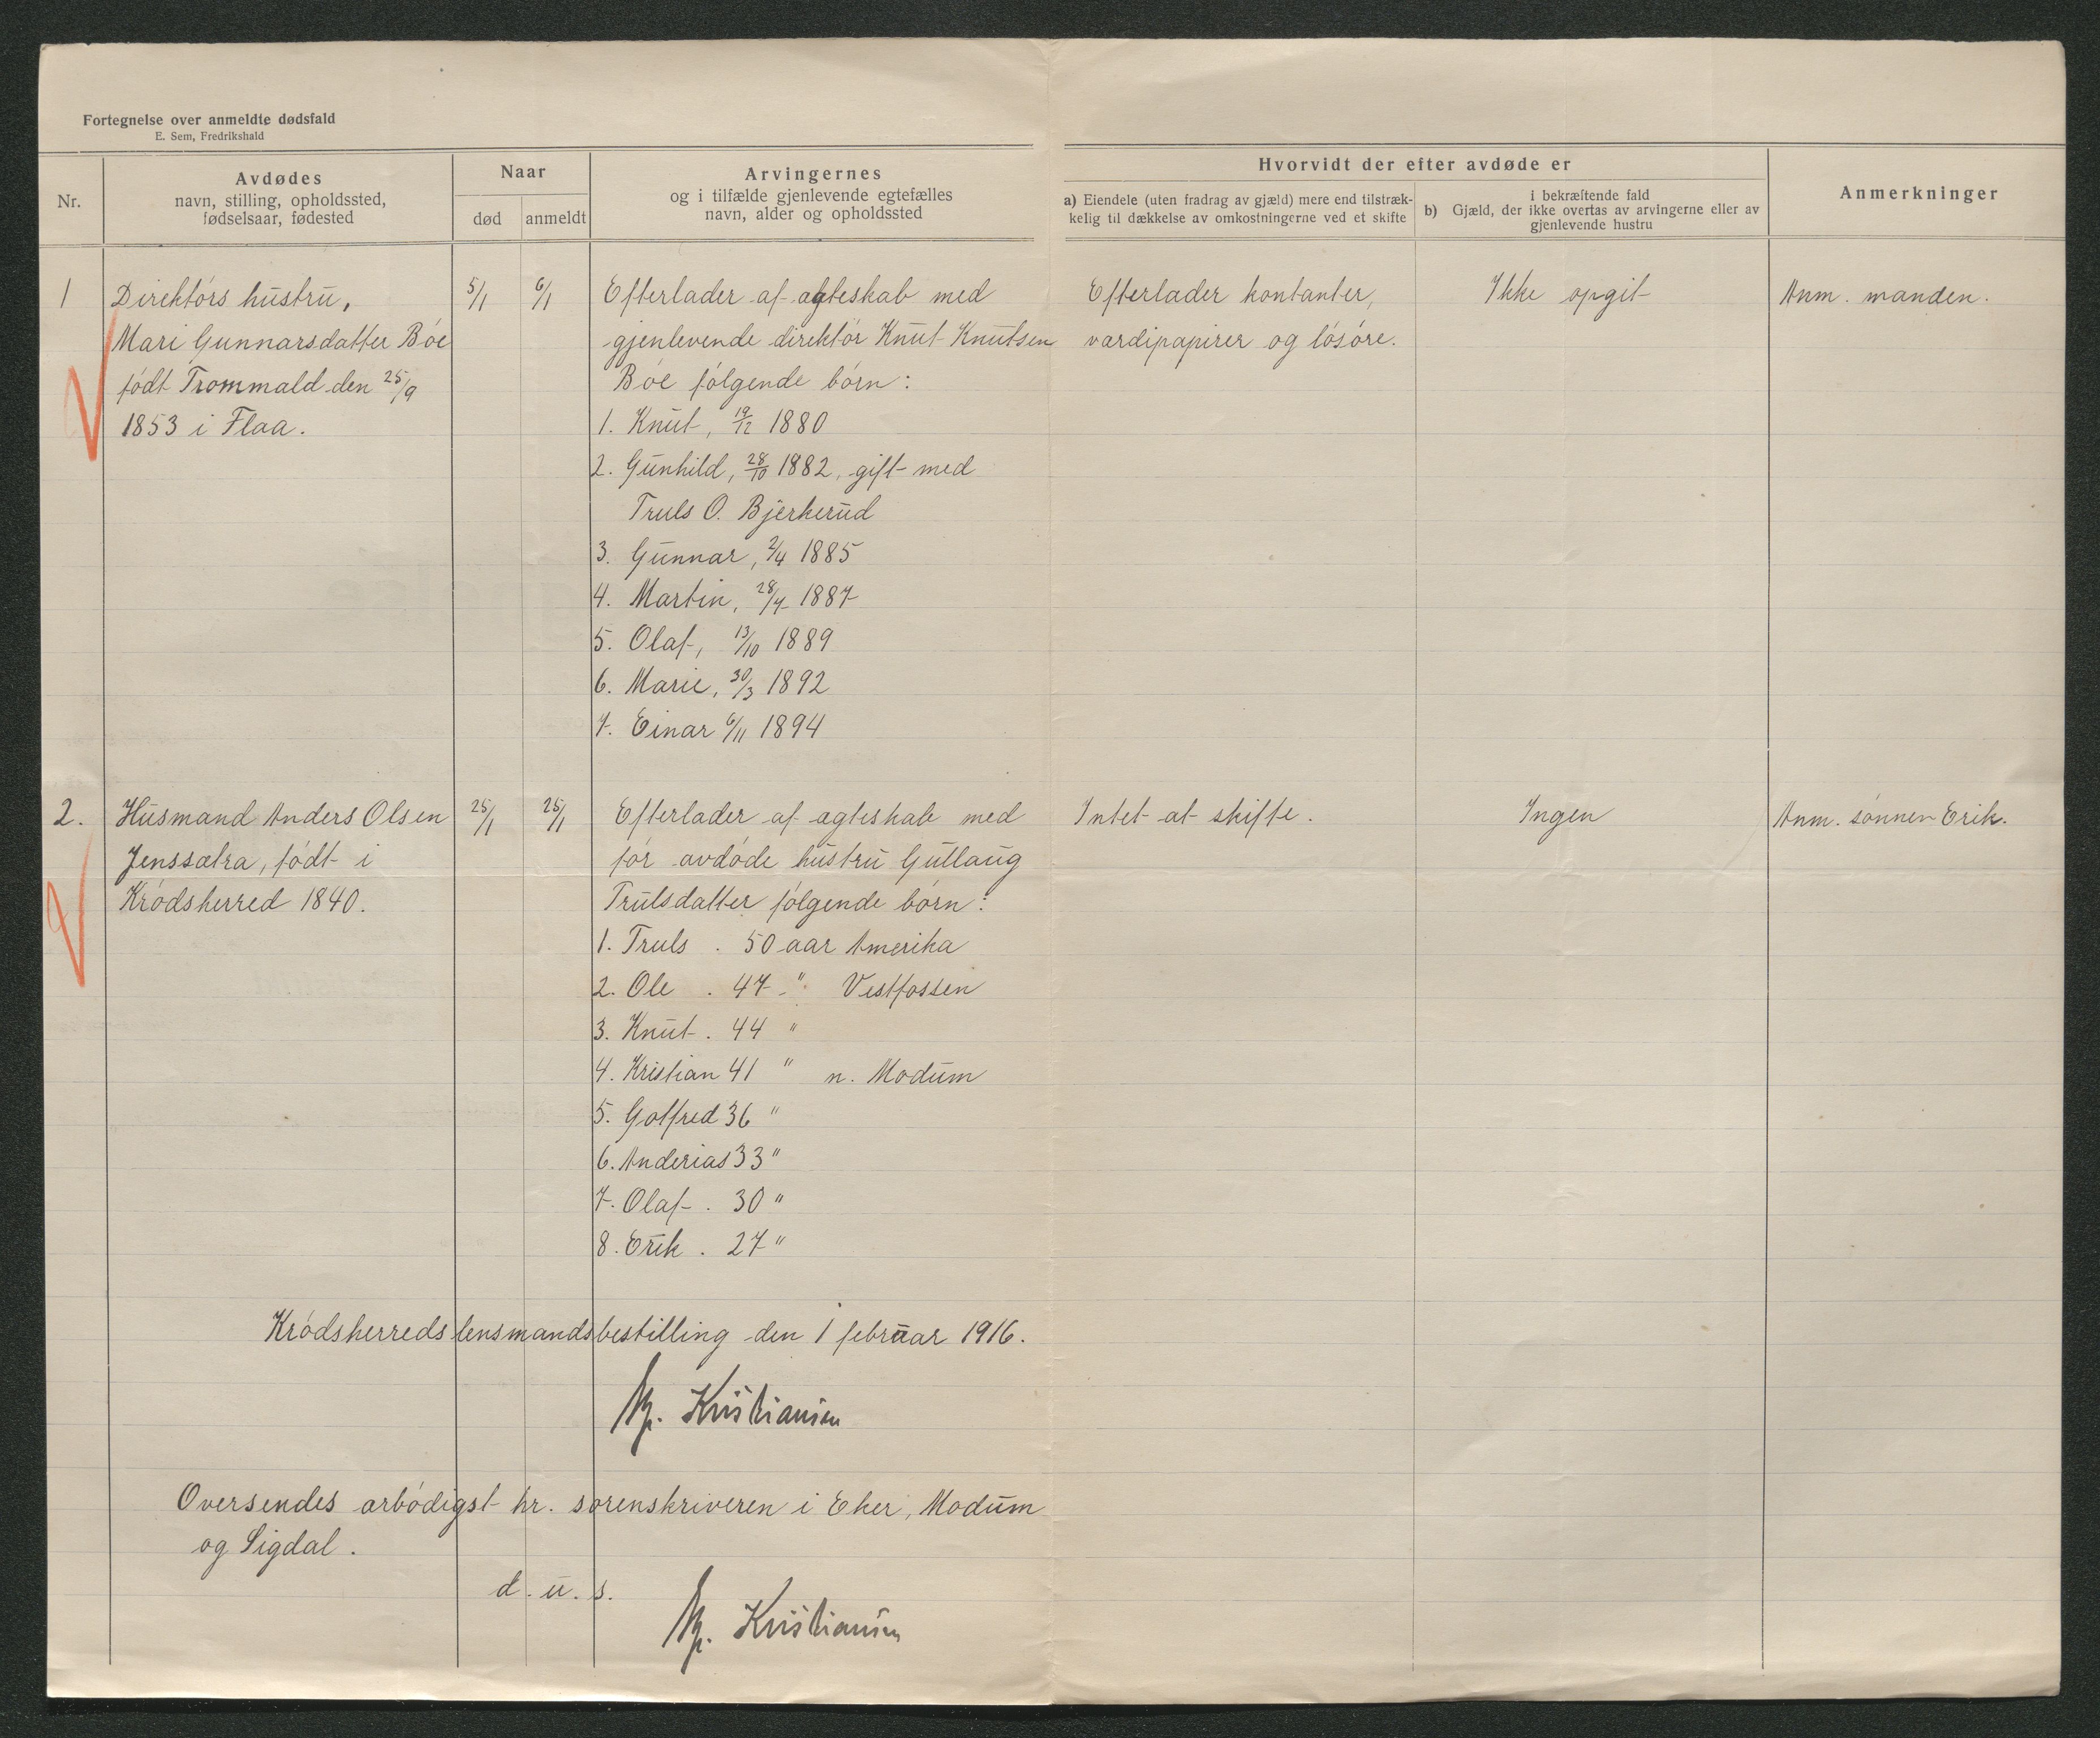 Fortegnelse over anmeldte dødsfald
E. Sem, Fredrikshald
Nr.
Avdødes
navn, stilling, opholdssted,
fødselsaar, fødested
Naar
død
anmeldt
Arvingernes
og i tilfælde gjenlevende egtefælles
navn, alder og opholdssted
Hvorvidt der efter avdøde er
a) Eiendele (uten fradrag av gjæld) mere end tilstræk-
kelig til dækkelse av omkostningerne ved et skifte
i bekræftende fald
b) Gjæld, der ikke overtas av arvingerne eller av
gjenlevende hustru
Anmerkninger
1
Direktörs hustru,
Mari Gunnarsdatter Böe
födt Trommald den 25/9
1853 i Flaa.
5/1
6/1
Efterlader af ægteskab med
gjenlevende direktör Knut Knutsen
Böe fölgende börn:
1. Knut, 19/12 1880
2. Gunhild, 28/10 1882, gift med
Truls O. Bjerkerud
3. Gunnar, 2/4 1885
4. Martin, 28/7 1887
5. Olaf, 13/10 1889
6. Marie, 30/3 1892
7. Einar 6/11 1894
Efterlader kontanter,
værdipapirer og lösöre.
Ikke opgit
Anm. manden.
2.
Husmand Anders Olsen
Jenssætra, födt i
Krödsherred 1840.
25/1
25/1
Efterlader af ægteskab med
för avdöde hustru Gullaug
Trulsdatter fölgende börn:
1. Truls . 50 aar Amerika
2. Ole . 47 " Vestfossen
3. Knut . 44 "
4. Kristian 41 " n. Modum
5. Golfred 36 "
6. Anderias 33 "
7. Olaf . 30 "
8. Erik . 27 "
Intet at skifte.
Ingen
Anm. sönnen Erik.
Krödsherreds lensmandsbestilling den 1 februar 1916.
Kristiansen
Oversendes ærbödigst hr. sorenskriveren i Eker, Modum
og Sigdal.
d. u. s.
Kristiansen